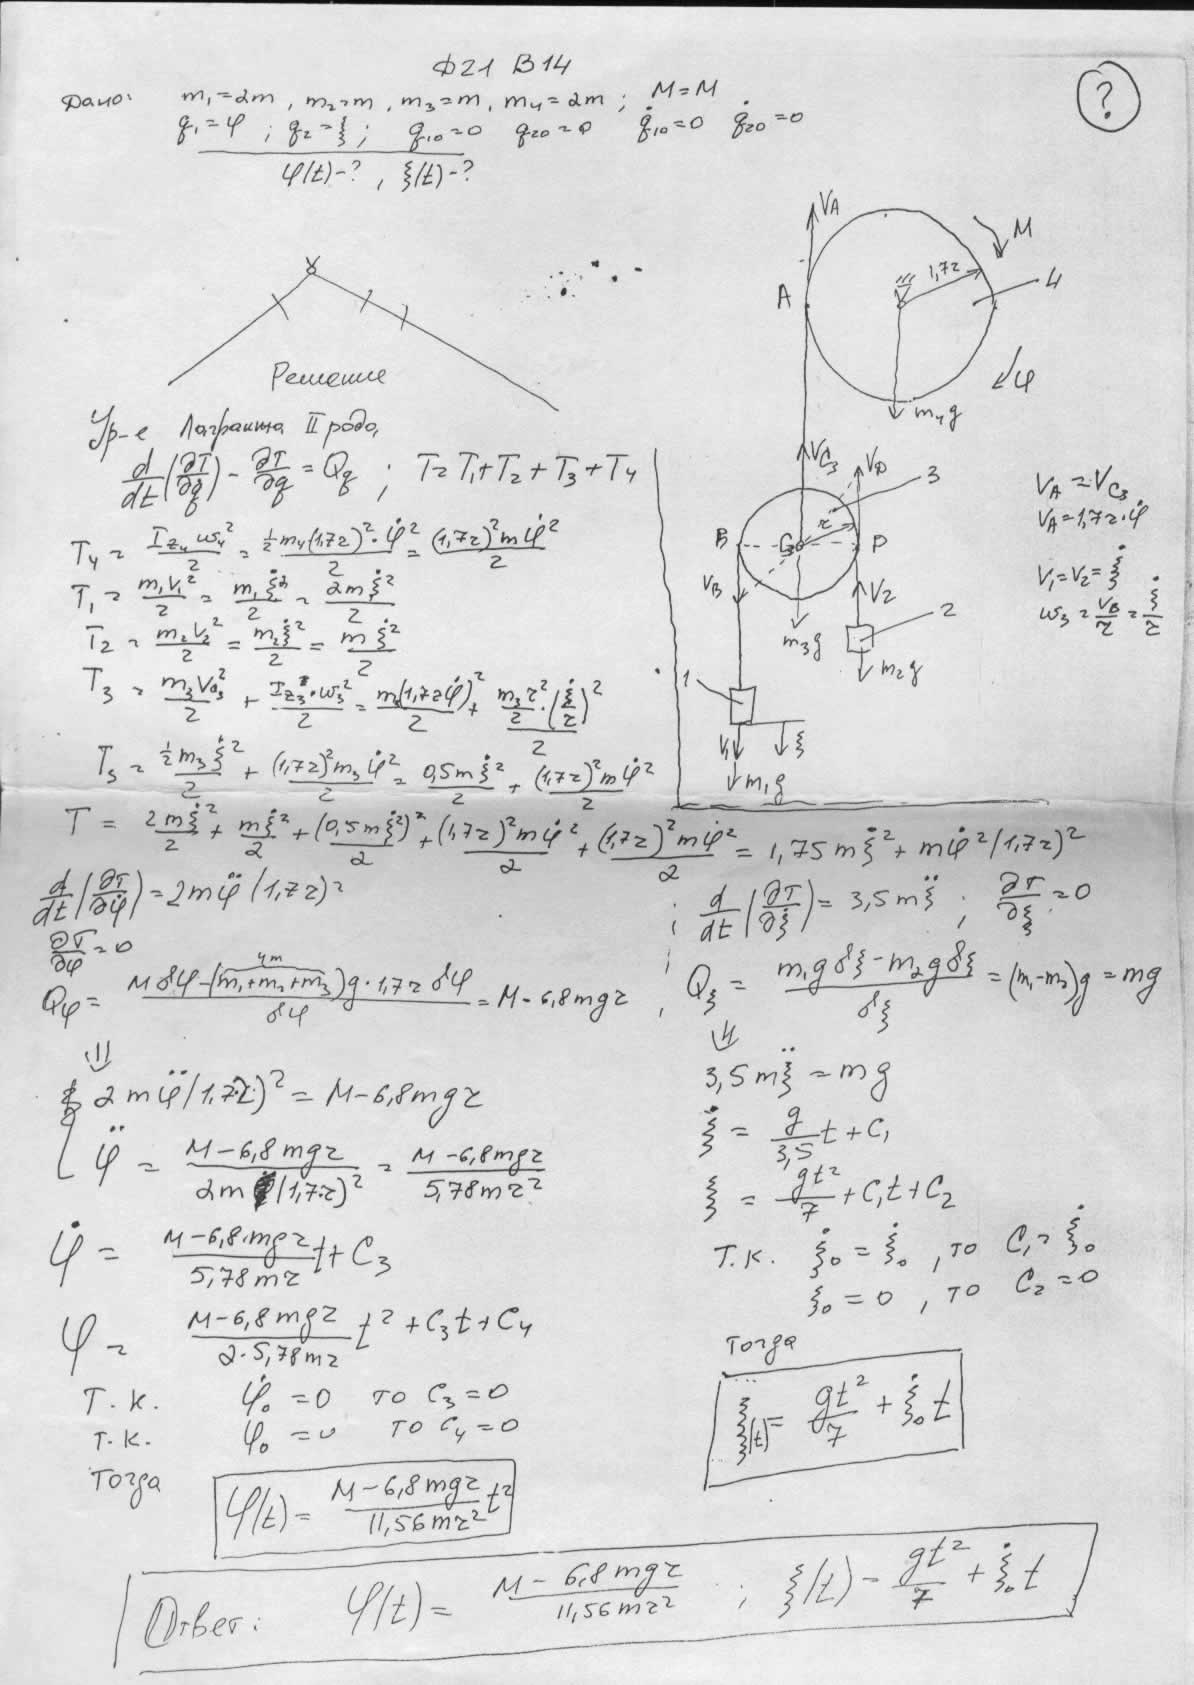 Ф21 В14
?
Дано: m₁=2m, m₂=m, m₃=m, m₄=2m; M=M
q₁=φ; q₂=ξ; q₁₀=0 q₂₀=0 q̇₁₀=0 q̇₂₀=0
φ(t)-?, ξ(t)-?
Решение
Ур-е Лагранжа II рода,
d/dt(∂T/∂q̇) - ∂T/∂q = Q_q ; T=T₁+T₂+T₃+T₄
T₄ = I_z₄ω₄²/2 = ½m₄(1,7r)²·φ̇²/2 = (1,7r)²mφ̇²/2
T₁ = m₁V₁²/2 = m₁ξ̇²/2 = 2mξ̇²/2
T₂ = m₂V₂²/2 = m₂ξ̇²/2 = mξ̇²/2
T₃ = m₃V_c₃²/2 + I_z₃·ω₃²/2 = m₃(1,7rφ̇)²/2 + m₃r²/2·(ξ̇/r)²/2
T₃ = ½m₃ξ̇²/2 + (1,7r)²m₃φ̇²/2 = 0,5mξ̇²/2 + (1,7r)²mφ̇²/2
V_A
M
1,7r
A
4
φ
m₄g
V_C₃
V_D
3
r
B
C₃
D
V_B
V₂
2
m₃g
m₂g
1
V₁
ξ
m₁g
V_A = V_C₃
V_A = 1,7r·φ̇
V₁=V₂=ξ̇
ω₃ = V_B/r = ξ̇/r
T = 2mξ̇²/2 + mξ̇²/2 + (0,5mξ̇²)²/2 + (1,7r)²mφ̇²/2 + (1,7r)²mφ̇²/2 = 1,75mξ̇² + mφ̇²(1,7r)²
d/dt(∂T/∂φ̇) = 2mφ̈(1,7r)² ; d/dt(∂T/∂ξ̇) = 3,5mξ̈ ; ∂T/∂ξ = 0
∂T/∂φ = 0
4m
Q_φ = Mδφ-(m₁+m₂+m₃)g·1,7rδφ/δφ = M-6,8mgr , Q_ξ = m₁gδξ-m₂gδξ/δξ = (m₁-m₂)g = mg
⇓
2mφ̈(1,7r)² = M-6,8mgr
φ̈ = M-6,8mgr/2m(1,7r)² = M-6,8mgr/5,78mr²
φ̇ = M-6,8mgr/5,78mr t+C₃
φ = M-6,8mgr/2·5,78mr t²+C₃t+C₄
Т.К. φ̇₀ = 0 то C₃=0
Т.К. φ₀ = 0 то C₄=0
Тогда
φ(t) = M-6,8mgr/11,56mr² t²
⇓
3,5mξ̈ = mg
ξ̇ = g/3,5 t+C₁
ξ = gt²/7 + C₁t+C₂
Т.К. ξ̇₀ = ξ̇₀, то C₁=ξ̇₀
ξ₀ = 0, то C₂=0
тогда
ξ(t) = gt²/7 + ξ̇₀t
Ответ: φ(t) = M-6,8mgr/11,56mr² ; ξ(t) = gt²/7 + ξ̇₀t